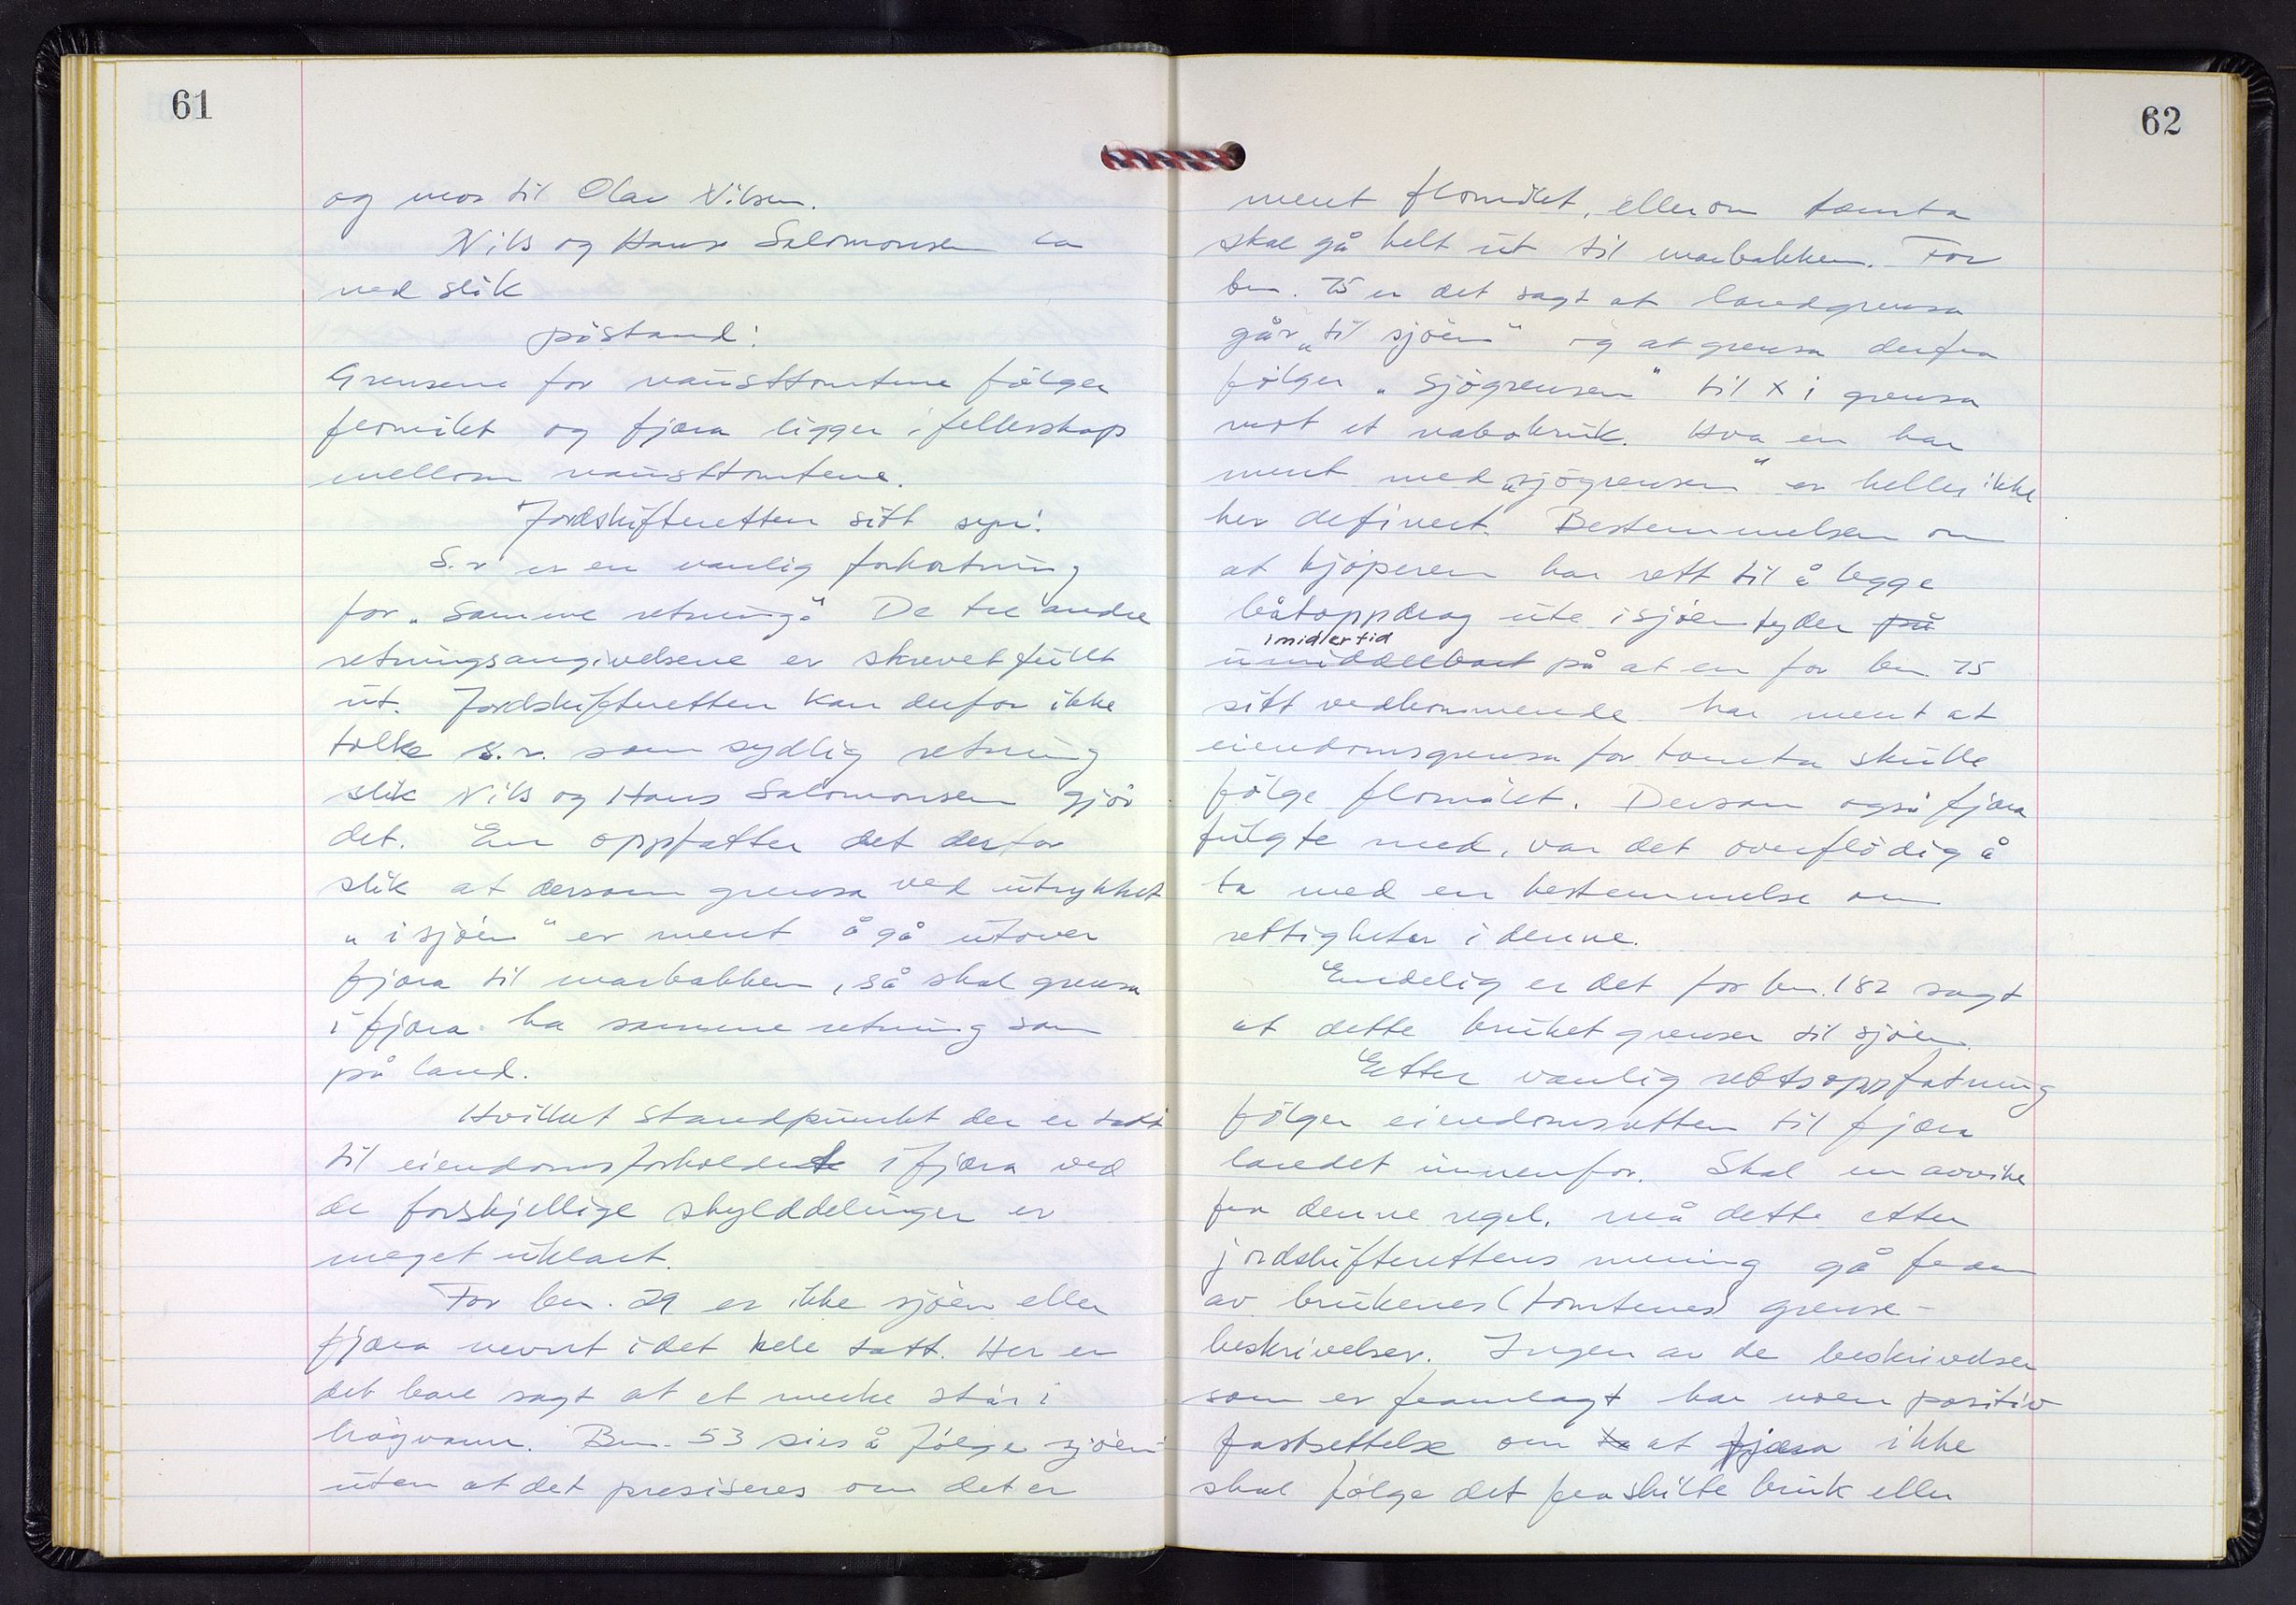 61
og mor til Olav Nilsen.
Nils og Hans Salomonsen la
ned slik
påstand:
Grensene for nausttomtene følger
flomålet og fjæra ligger i fellesskap
mellom nausttomtene.
Jordskifteretten sitt syn:
S.r er en vanlig forkortning
for „samme retning". De tre andre
retningsangivelsene er skrevet fullt
ut. Jordskifteretten kan derfor ikke
tolke s.r. som sydlig retning
slik Nils og Hans Salomonsen gjør
det. En oppfatter det derfor
slik at dersom grensa ved utrykket
„i sjøen" er ment å gå utover
fjæra til marbakken, så skal grensa
i fjæra ha samme retning som
på land.
Hvilket standpunkt der er tatt
til eiendomsforholdene i fjæra ved
de forskjellige skylddelinger er
meget uklart.
For bnr. 29 er ikke sjøen eller
fjæra nevnt i det hele tatt. Her er
det bare sagt at et merke står i
høgvann. Bnr. 53 sies å følge sjøen
uten at det presiseres om det er
62
ment flomålet, eller om tomta
skal gå helt ut til marbakken. For
bnr. 75 er det sagt at landgrensa
går „til sjøen" og at grensa derfra
følger „sjøgrensen" til x i grensa
mot et nabobruk. Hva en har
ment med „sjøgrensen" er heller ikke
her definert. Bestemmelsen om
at kjøperen har rett til å legge
båtoppdrag ute i sjøen tyder på
imidlertid
umiddelbart på at en for bnr. 75
sitt vedkommende har ment at
eiendomsgrensa for tomta skulle
følge flomålet. Dersom også fjæra
fulgte med, var det overflødig å
ta med en bestemmelse om
rettigheter i denne.
Endelig er det for bnr. 182 sagt
at dette bruket grenser til sjøen.
Etter vanlig rettsoppfatning
følger eiendomsretten til fjæra
landet innenfor. Skal en avvike
fra denne regel, må dette etter
jordskifterettens mening gå fram
av brukenes (tomtenes) grense-
beskrivelser. Ingen av de beskrivelser
som er framlagt har noen positiv
fastsettelse om at fjæra ikke
skal følge det fraskilte bruk eller